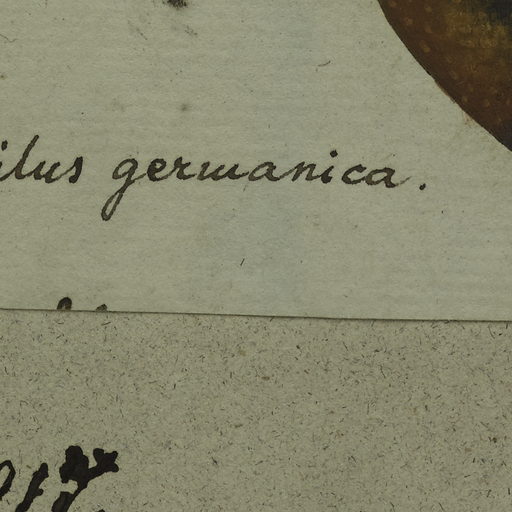 ilus germanica.